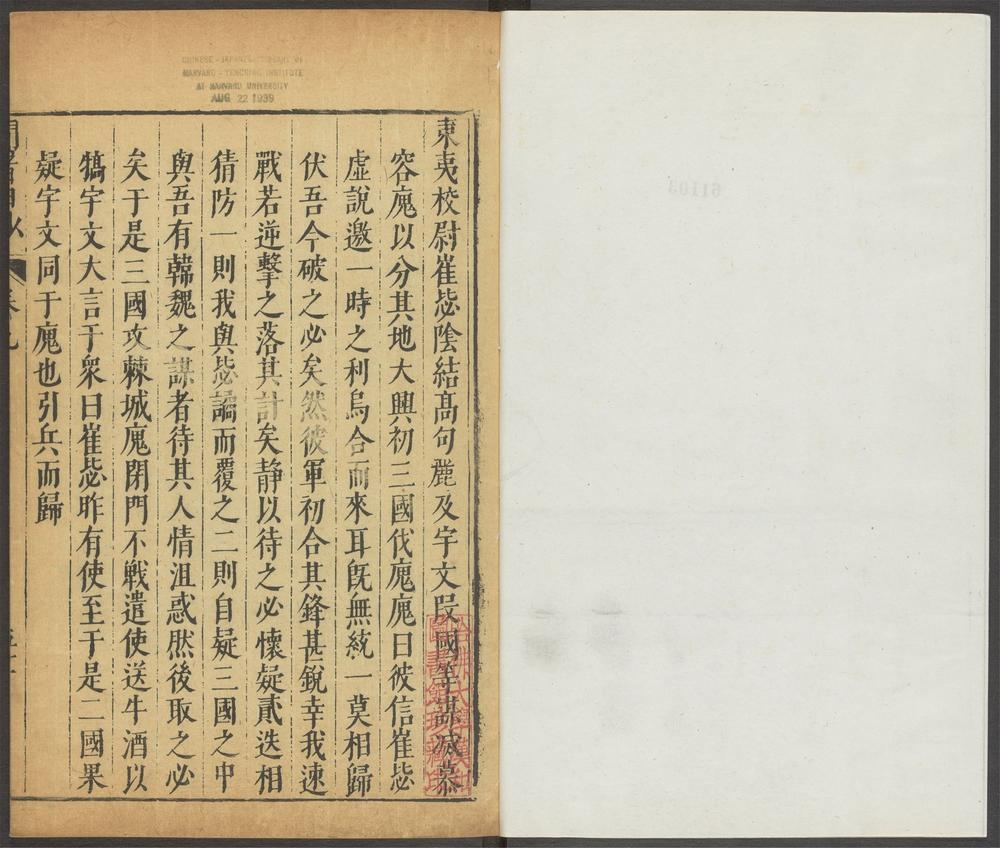 CHINESE - JAPANESE LIBRARY OF
HARVARD - YENCHING INSTITUTE
AT HARVARD UNIVERSITY
AUG 22 1939
東夷校尉崔毖陰結高句麗及宇文段國等謀滅慕
容廆以分其地大興初三國伐廆廆曰彼信崔毖
虛說邀一時之利烏合而來耳旣無統一莫相歸
伏吾今破之必矣然彼軍初合其鋒甚銳幸我速
戰若逆擊之落其計矣靜以待之必懷疑貳迭相
猜防一則我與毖譎而覆之二則自疑三國之中
與吾有韓魏之謀者待其人情沮惑然後取之必
矣于是三國攻棘城廆閉門不戰遣使送牛酒以
犒宇文大言于衆曰崔毖昨有使至于是二國果
疑宇文同于廆也引兵而歸
哈佛大學漢和
圖書館珍藏印
61103